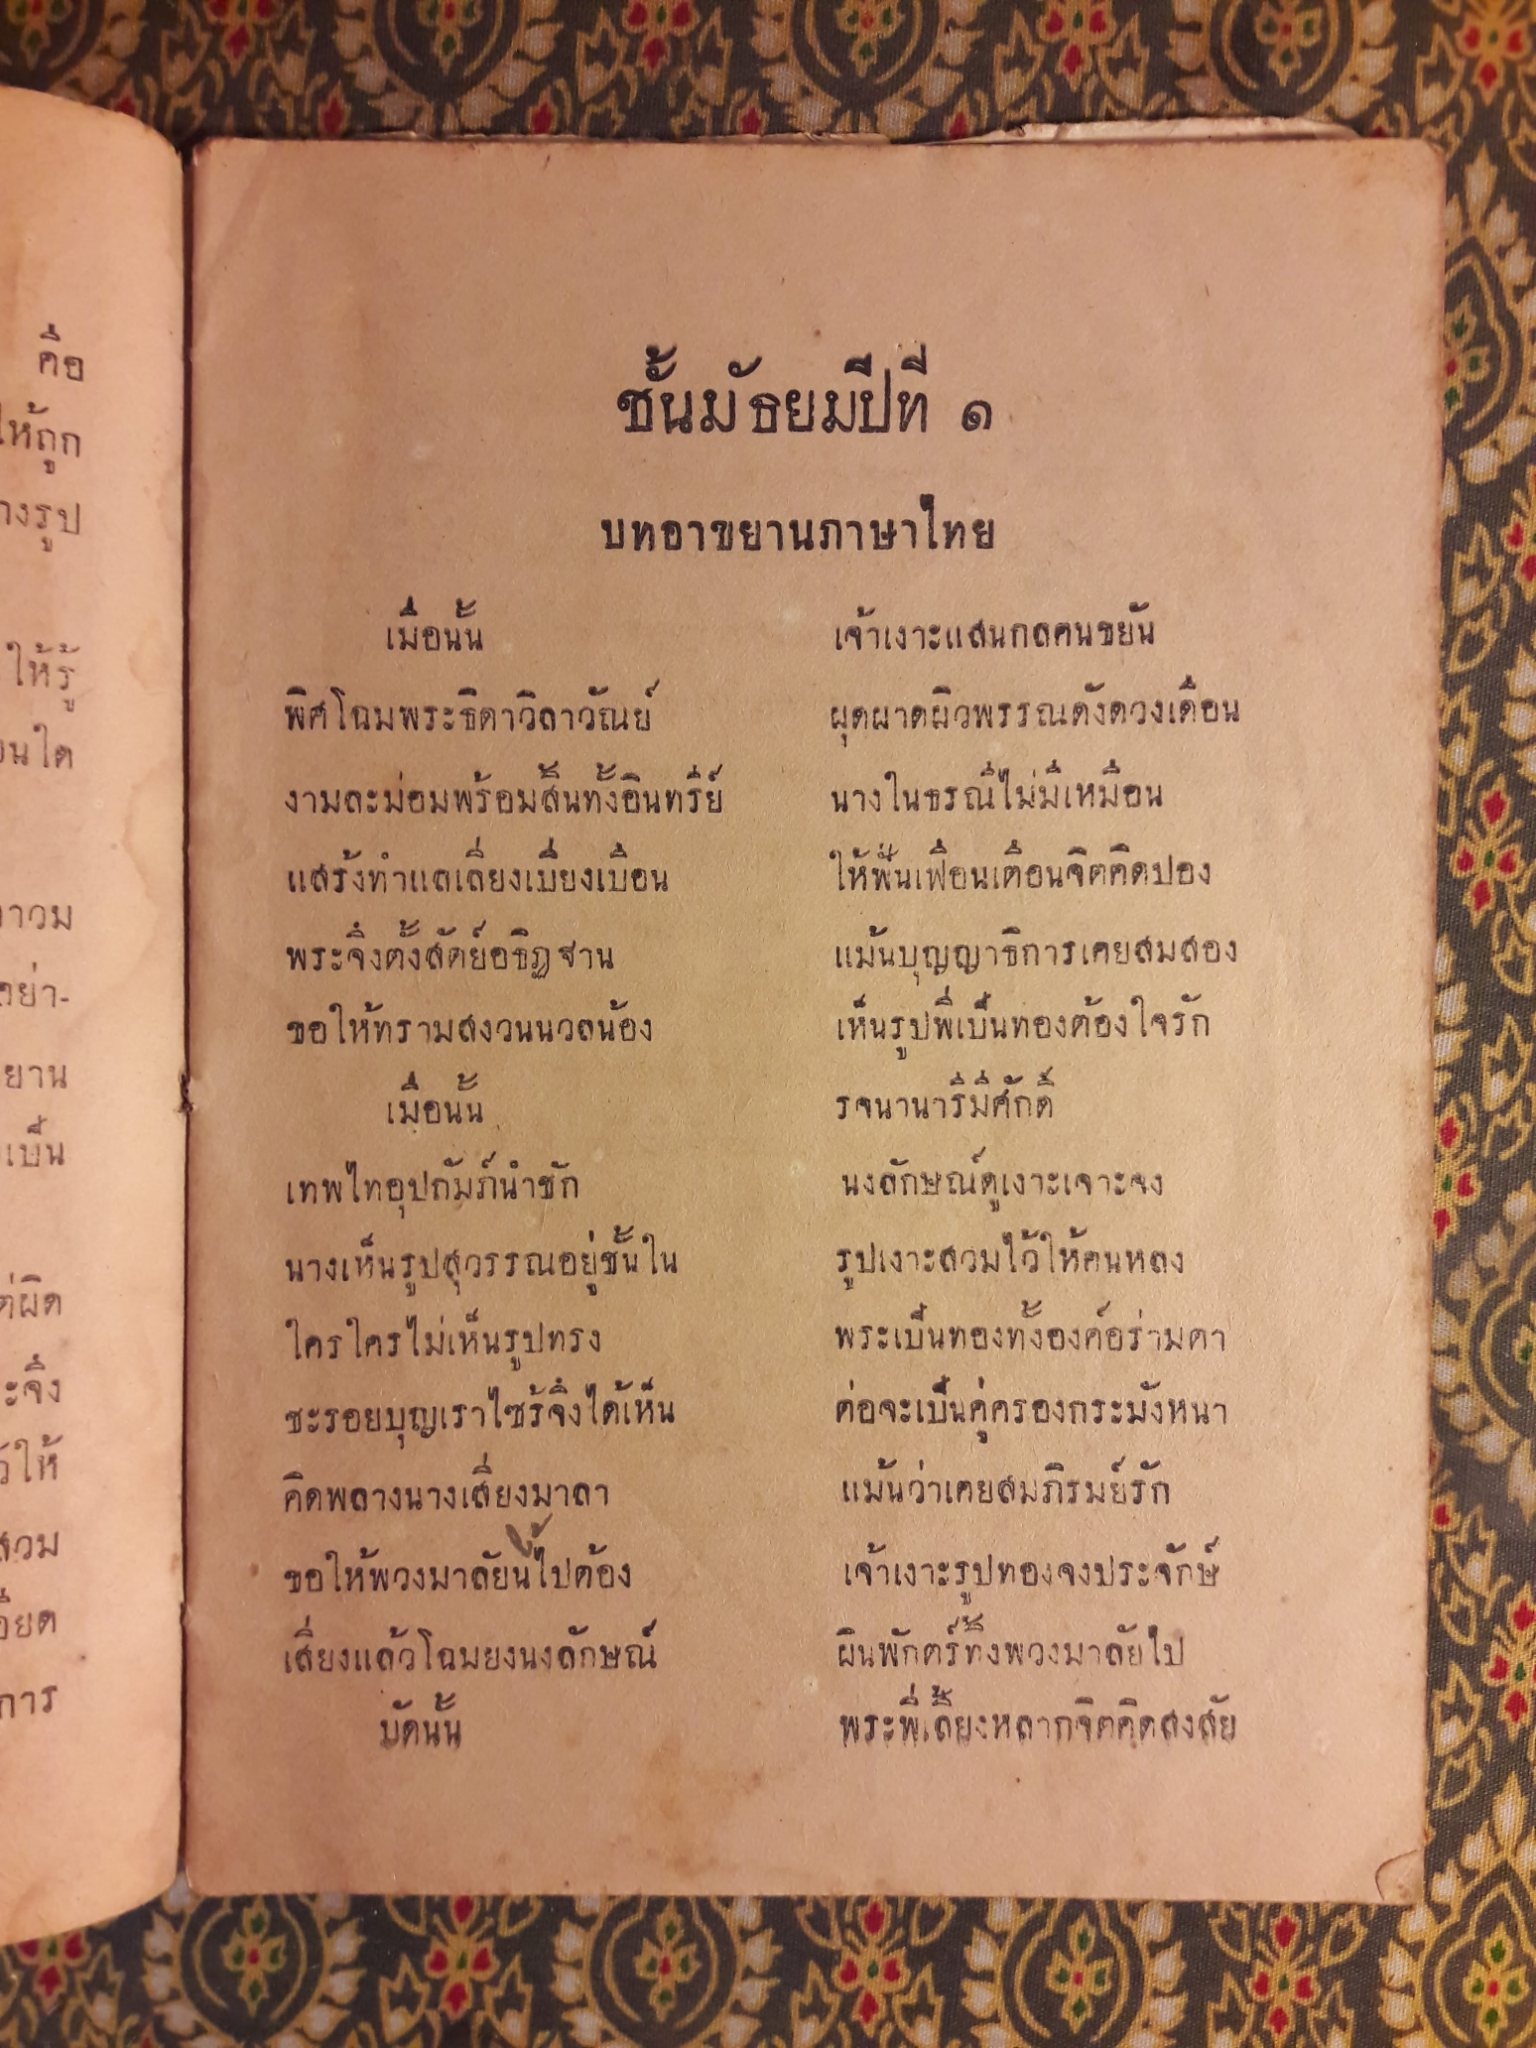 คือ
ให้ถูก
างรูป
ให้รู้
อนใด
าวม
ตย่า-
ยาน
เป็น
ต่ผิด
ะจึง
ให้
สวม
อียด
การ
ชั้นมัธยมปีที่ ๑
บทอาขยานภาษาไทย
เมื่อนั้น เจ้าเงาะแสนกลคนขยัน
พิศโฉมพระธิดาวิลาวัณย์ ผุดผาดผิวพรรณดังดวงเดือน
งามละม่อมพร้อมสิ้นทั้งอินทรีย์ นางในธรณีไม่มีเหมือน
แสร้งทำแลเลี่ยงเบี่ยงเบือน ให้ฟั่นเฟือนเตือนจิตคิดปอง
พระจึงตั้งสัตย์อธิฏฐาน แม้นบุญญาธิการเคยสมสอง
ขอให้ทรามสงวนนวลน้อง เห็นรูปพี่เป็นทองต้องใจรัก
เมื่อนั้น รจนานารีมีศักดิ์
เทพไทอุปถัมภ์นำชัก นงลักษณ์ดูเงาะเจาะจง
นางเห็นรูปสุวรรณอยู่ชั้นใน รูปเงาะสวมไว้ให้คนหลง
ใครใครไม่เห็นรูปทรง พระเป็นทองทั้งองค์อร่ามตา
ชะรอยบุญเราไซร้จึงได้เห็น ต่อจะเป็นคู่ครองกระมังหนา
คิดพลางนางเสี่ยงมาลา แม้นว่าเคยสมภิรมย์รัก
ขอให้พวงมาลัยนี้ไปต้อง เจ้าเงาะรูปทองจงประจักษ์
เสี่ยงแล้วโฉมยงนงลักษณ์ ผินพักตร์ทิ้งพวงมาลัยไป
บัดนั้น พระพี่เลี้ยงหลากจิตคิดสงสัย